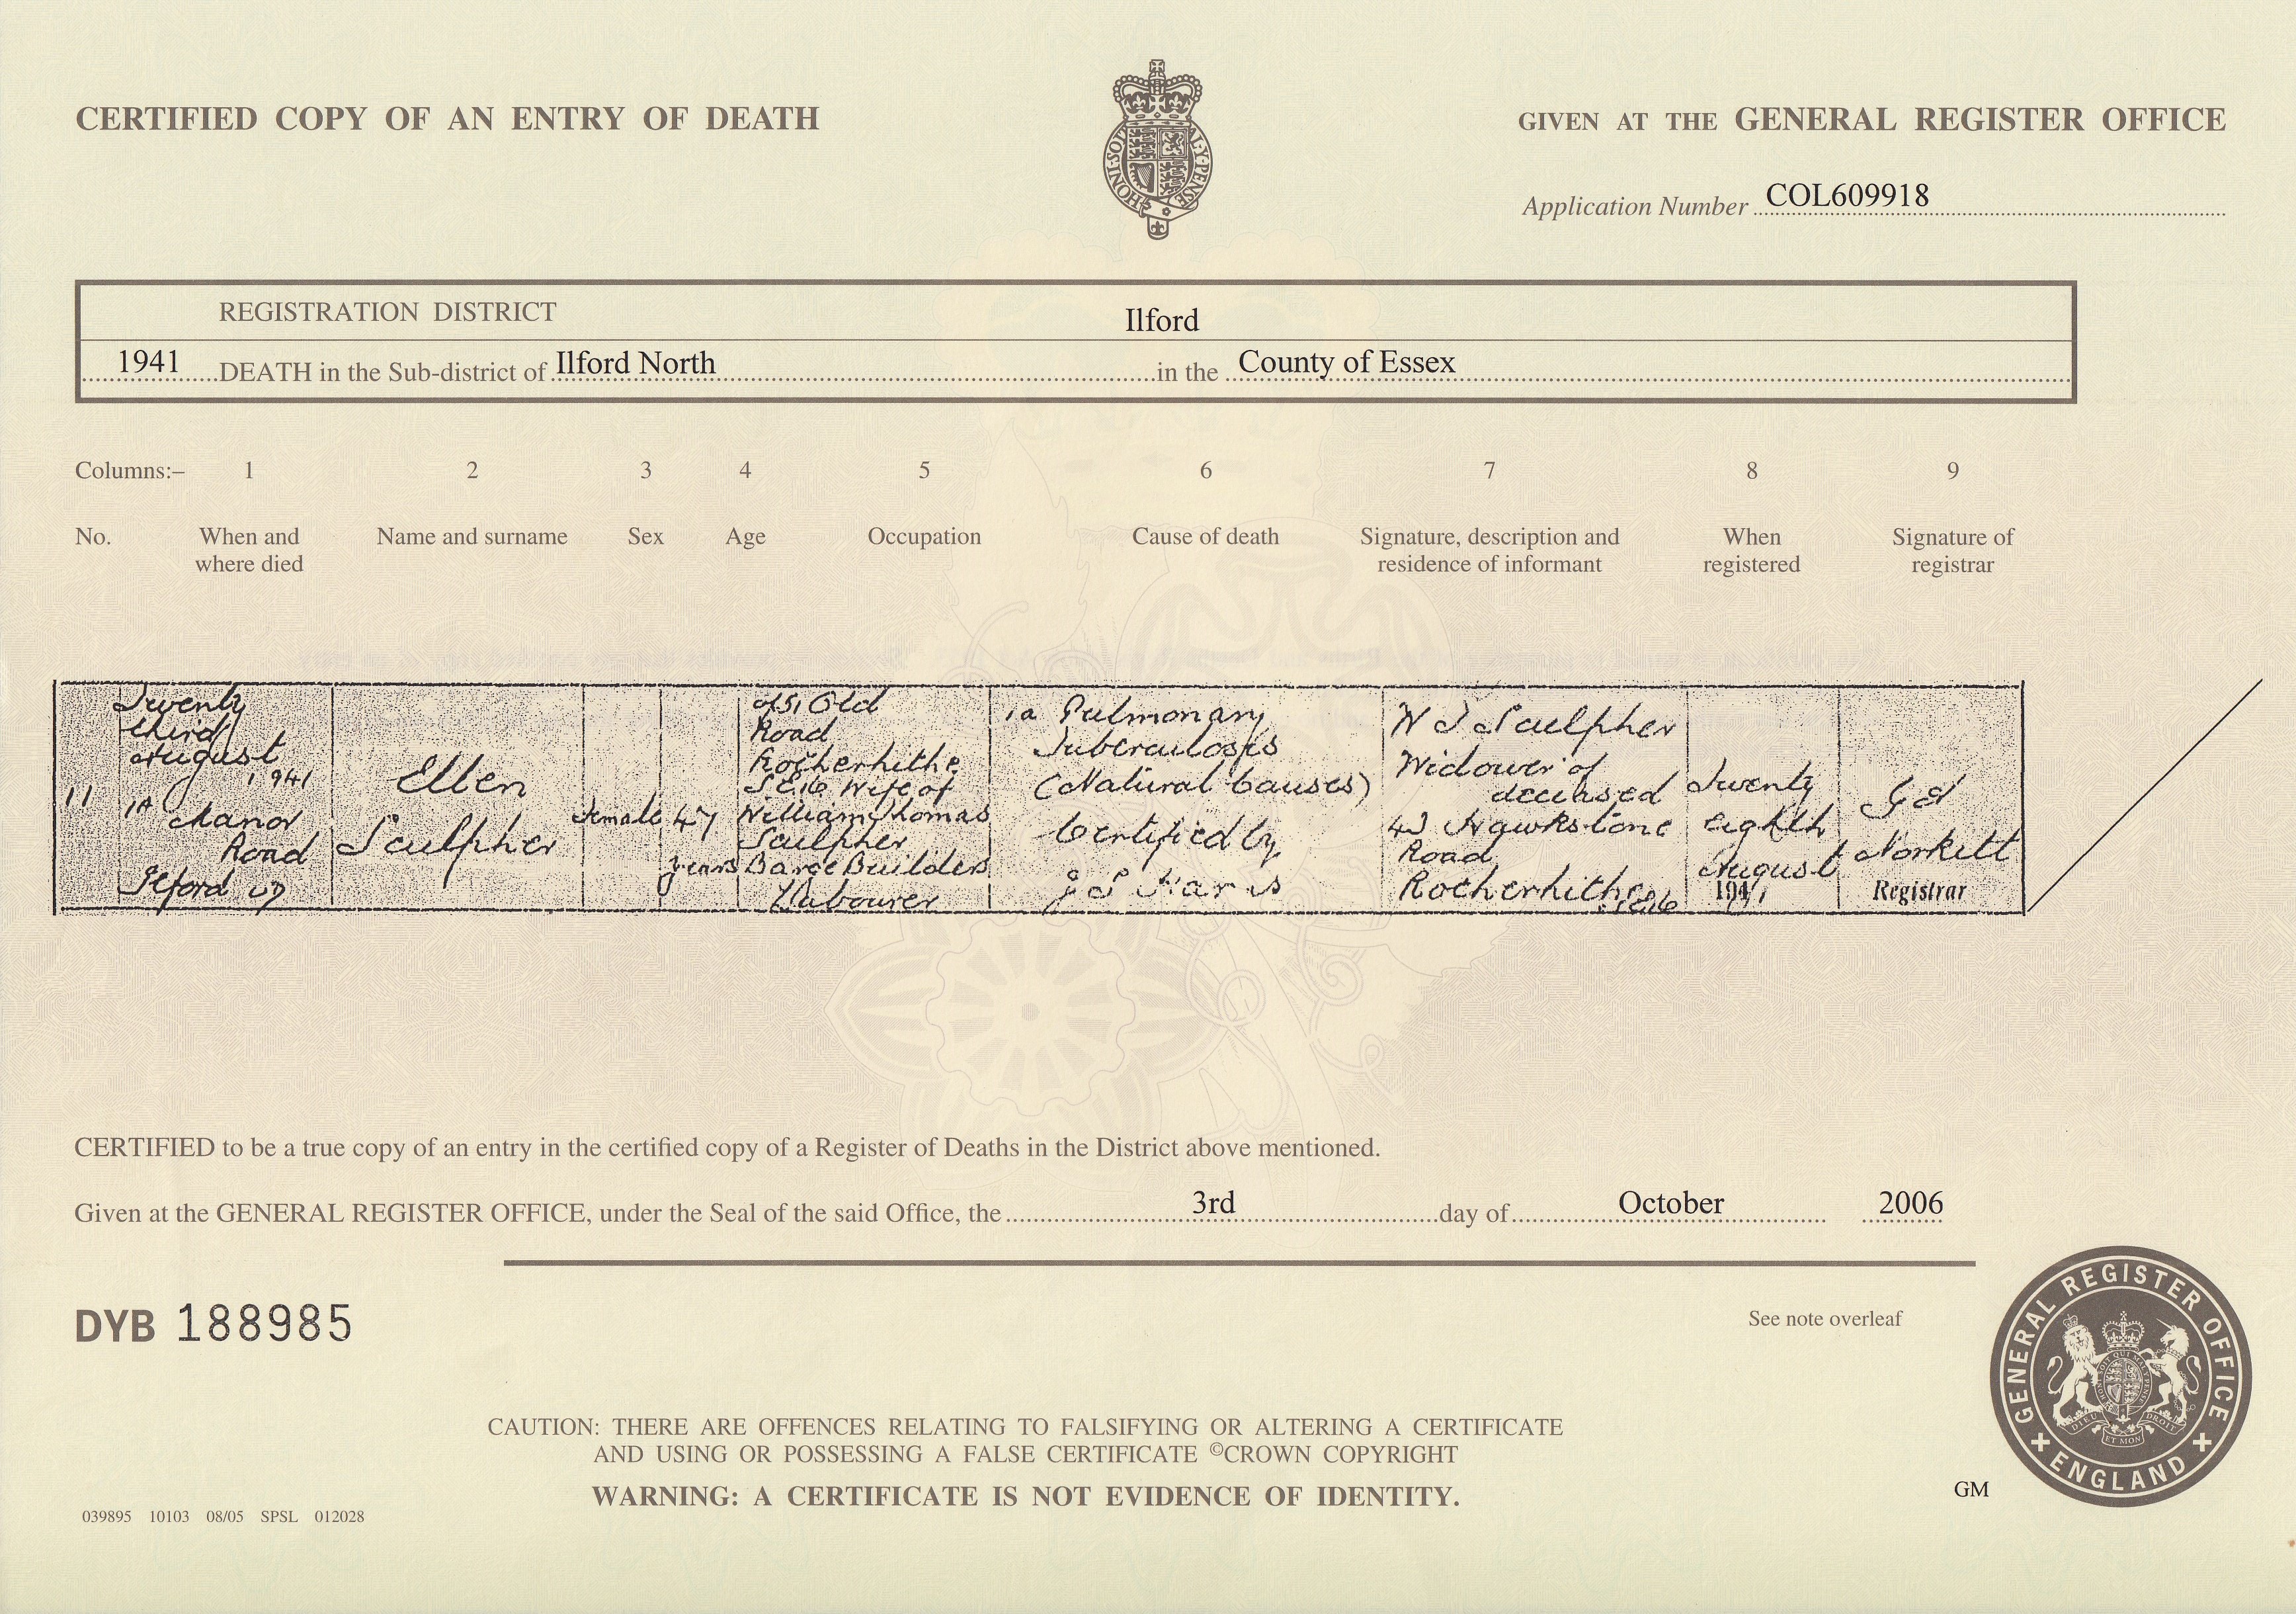 CERTIFIED COPY OF AN ENTRY OF DEATH
GIVEN AT THE GENERAL REGISTER OFFICE
Application Number COL609918
REGISTRATION DISTRICT Ilford
1941 DEATH in the Sub-district of Ilford North in the County of Essex
Columns:– 1 2 3 4 5 6 7 8 9
No.
When and
where died
Name and surname
Sex
Age
Occupation
Cause of death
Signature, description and
residence of informant
When
registered
Signature of
registrar
11
Twenty
third
August
1941
1A
Manor
Road
Ilford UD
Ellen
Sculpher
Female
47
years
Old
Road
Rotherhithe
S.E.16 Wife of
William Thomas
Sculpher
Barge Builders
Labourer
1a Pulmonary
Tuberculosis
(Natural Causes)
Certified by
W T Sculpher
Widower of
deceased
Hawkstone
Road
Rotherhithe SE16
Twenty
eighth
August
1941
Norkett
Registrar
CERTIFIED to be a true copy of an entry in the certified copy of a Register of Deaths in the District above mentioned.
Given at the GENERAL REGISTER OFFICE, under the Seal of the said Office, the 3rd day of October 2006
DYB 188985
See note overleaf
GENERAL REGISTER OFFICE
ENGLAND
CAUTION: THERE ARE OFFENCES RELATING TO FALSIFYING OR ALTERING A CERTIFICATE
AND USING OR POSSESSING A FALSE CERTIFICATE ©CROWN COPYRIGHT
WARNING: A CERTIFICATE IS NOT EVIDENCE OF IDENTITY.
GM
039895 10103 08/05 SPSL 012028